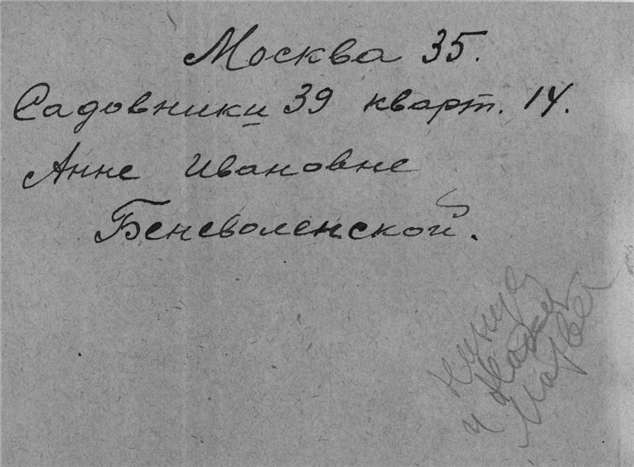 Москва 35.
Садовники 39 кварт. 14.
Анне Ивановне
Беневоленской.
и